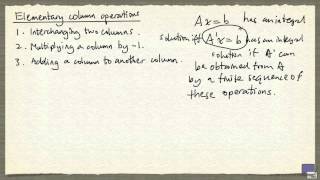 Elementary column operations
1. Interchanging two columns.
2. Multiplying a column by -1.
3. Adding a column to another column.
Ax=b has an integral
solution iff A'x=b has an integral
solution if A' can
be obtained from A
by a finite sequence of
these operations.